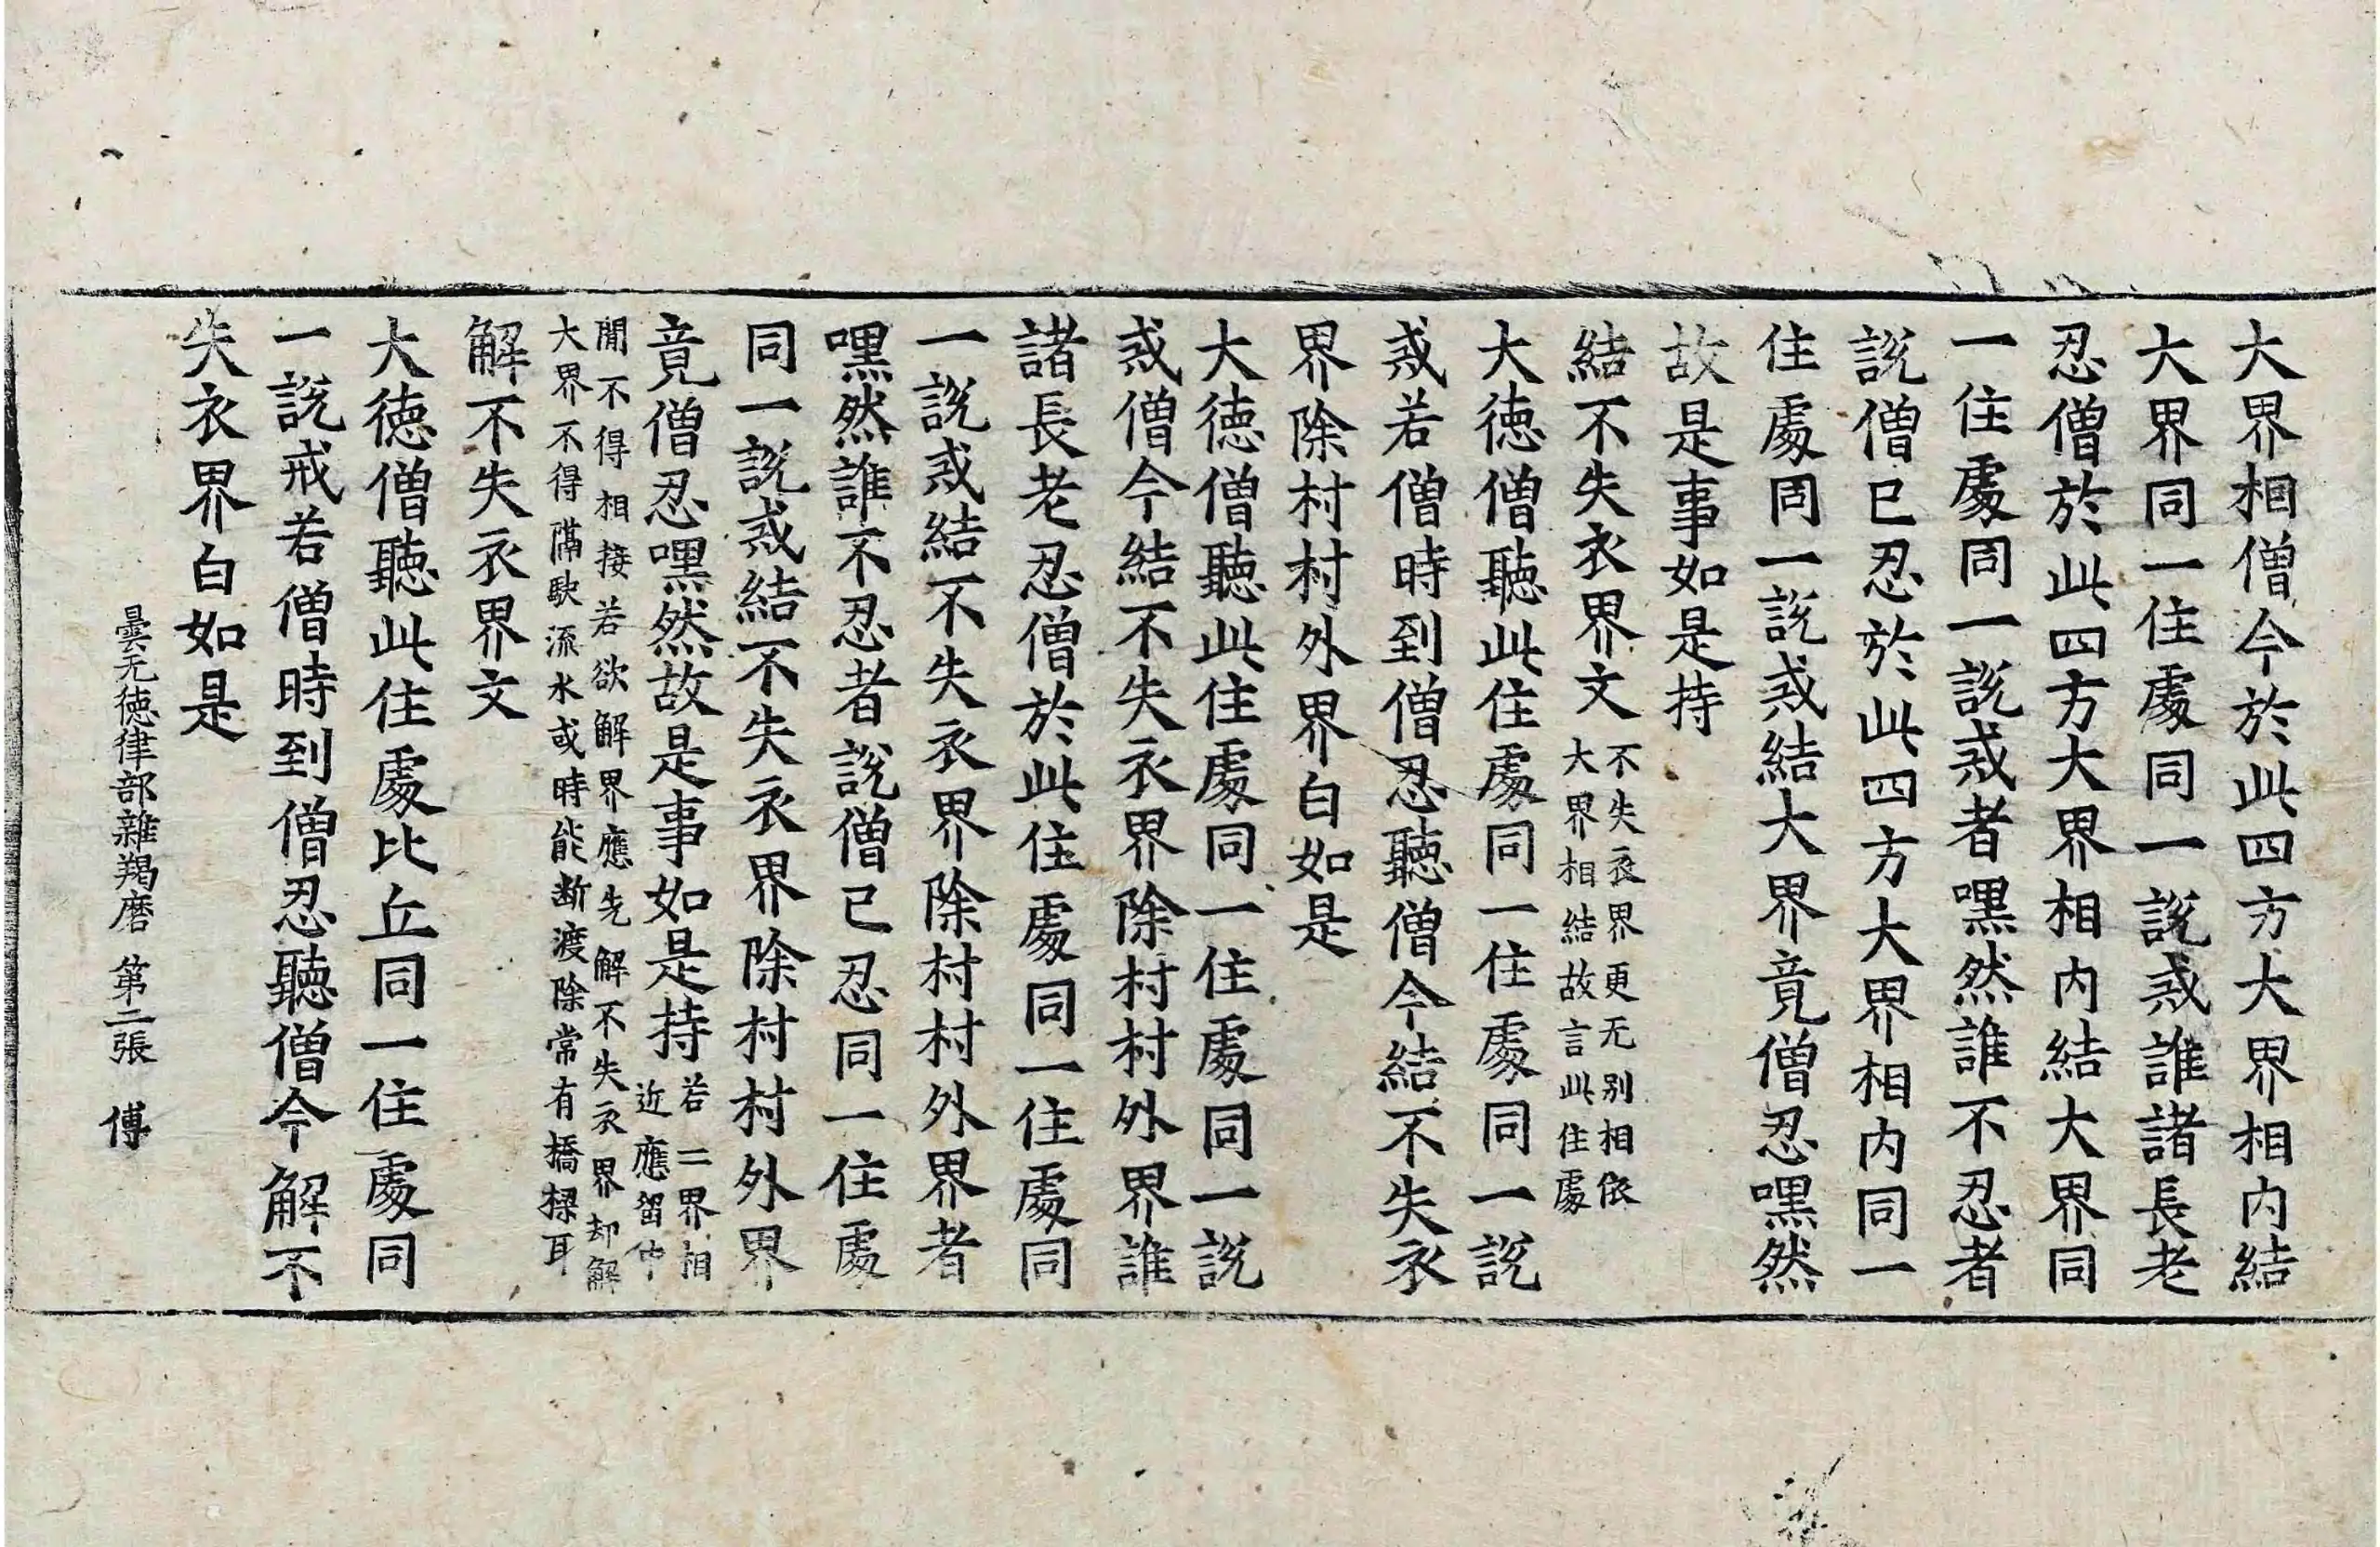 大界相僧今於此四方大界相内結
大界同一住處同一說戒誰諸長老
忍僧於此四方大界相内結大界同
一住處同一說戒者嘿然誰不忍者
說僧已忍於此四方大界相内同一
住處同一說戒結大界竟僧忍嘿然
故是事如是持
結不失衣界文
不失衣界更无別相依
大界相結故言此住處
大德僧聽此住處同一住處同一說
戒若僧時到僧忍聽僧今結不失衣
界除村村外界白如是
大德僧聽此住處同一住處同一說
戒僧今結不失衣界除村村外界誰
諸長老忍僧於此住處同一住處同
一說戒結不失衣界除村村外界者
嘿然誰不忍者說僧已忍同一住處
同一說戒結不失衣界除村村外界
竟僧忍嘿然故是事如是持
若二界相
近應留中
間不得相接若欲解界應先解不失衣界却解
大界不得隔駛流水或時能斷渡除常有橋樑耳
解不失衣界文
大德僧聽此住處比丘同一住處同
一說戒若僧時到僧忍聽僧今解不
失衣界白如是
曇无德律部雜羯磨 第二張 傅